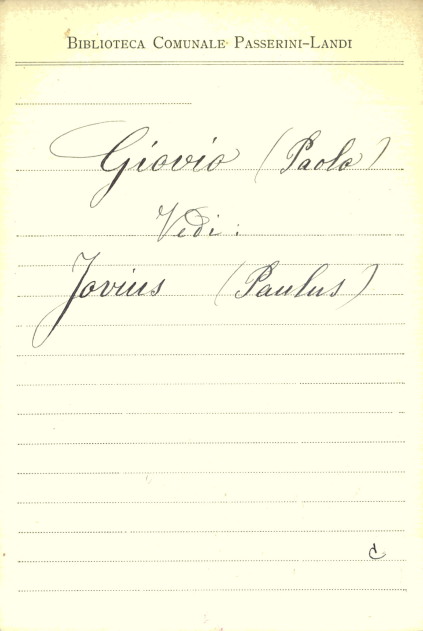 BIBLIOTECA COMUNALE PASSERINI-LANDI
Giovio (Paolo)
Vedi:
Jovius (Paulus)